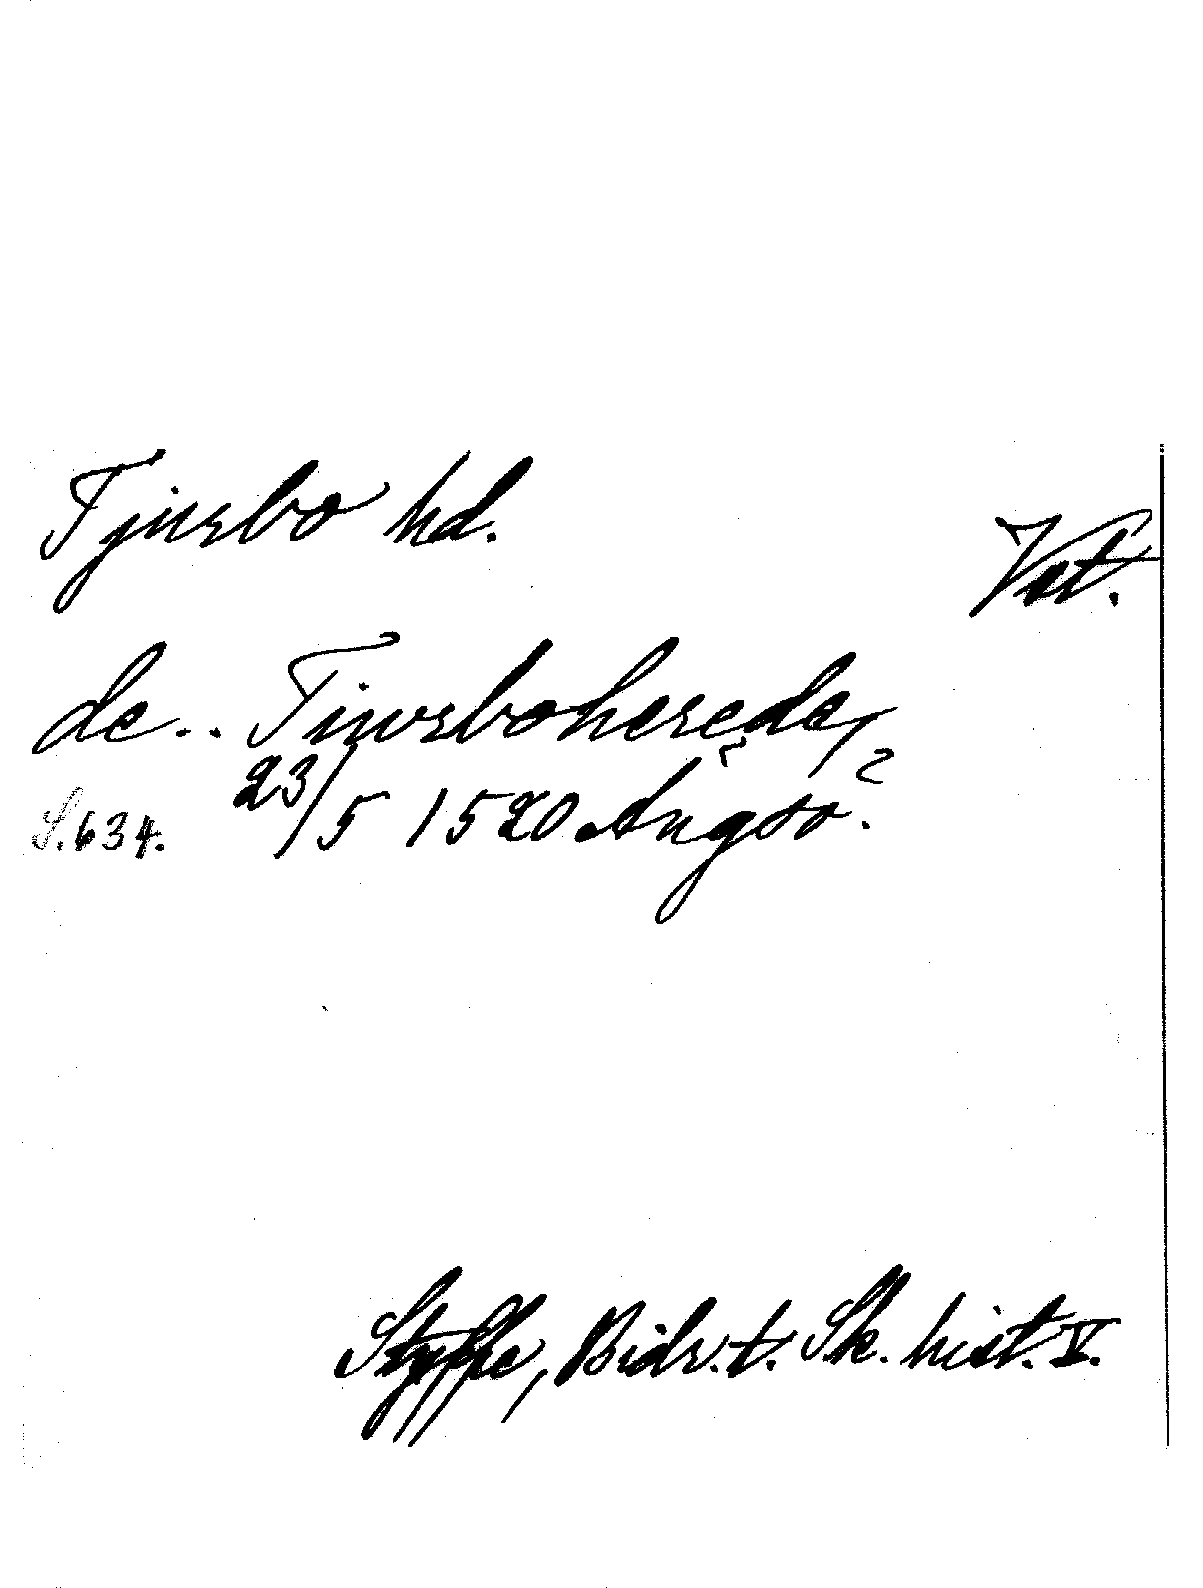 Tjurbo hd.
Vst.
de.. Tiwrboherede,
S. 634. 23/5 1520 Ängsö.
Styffe, Bidr. t. Sk. hist. V.